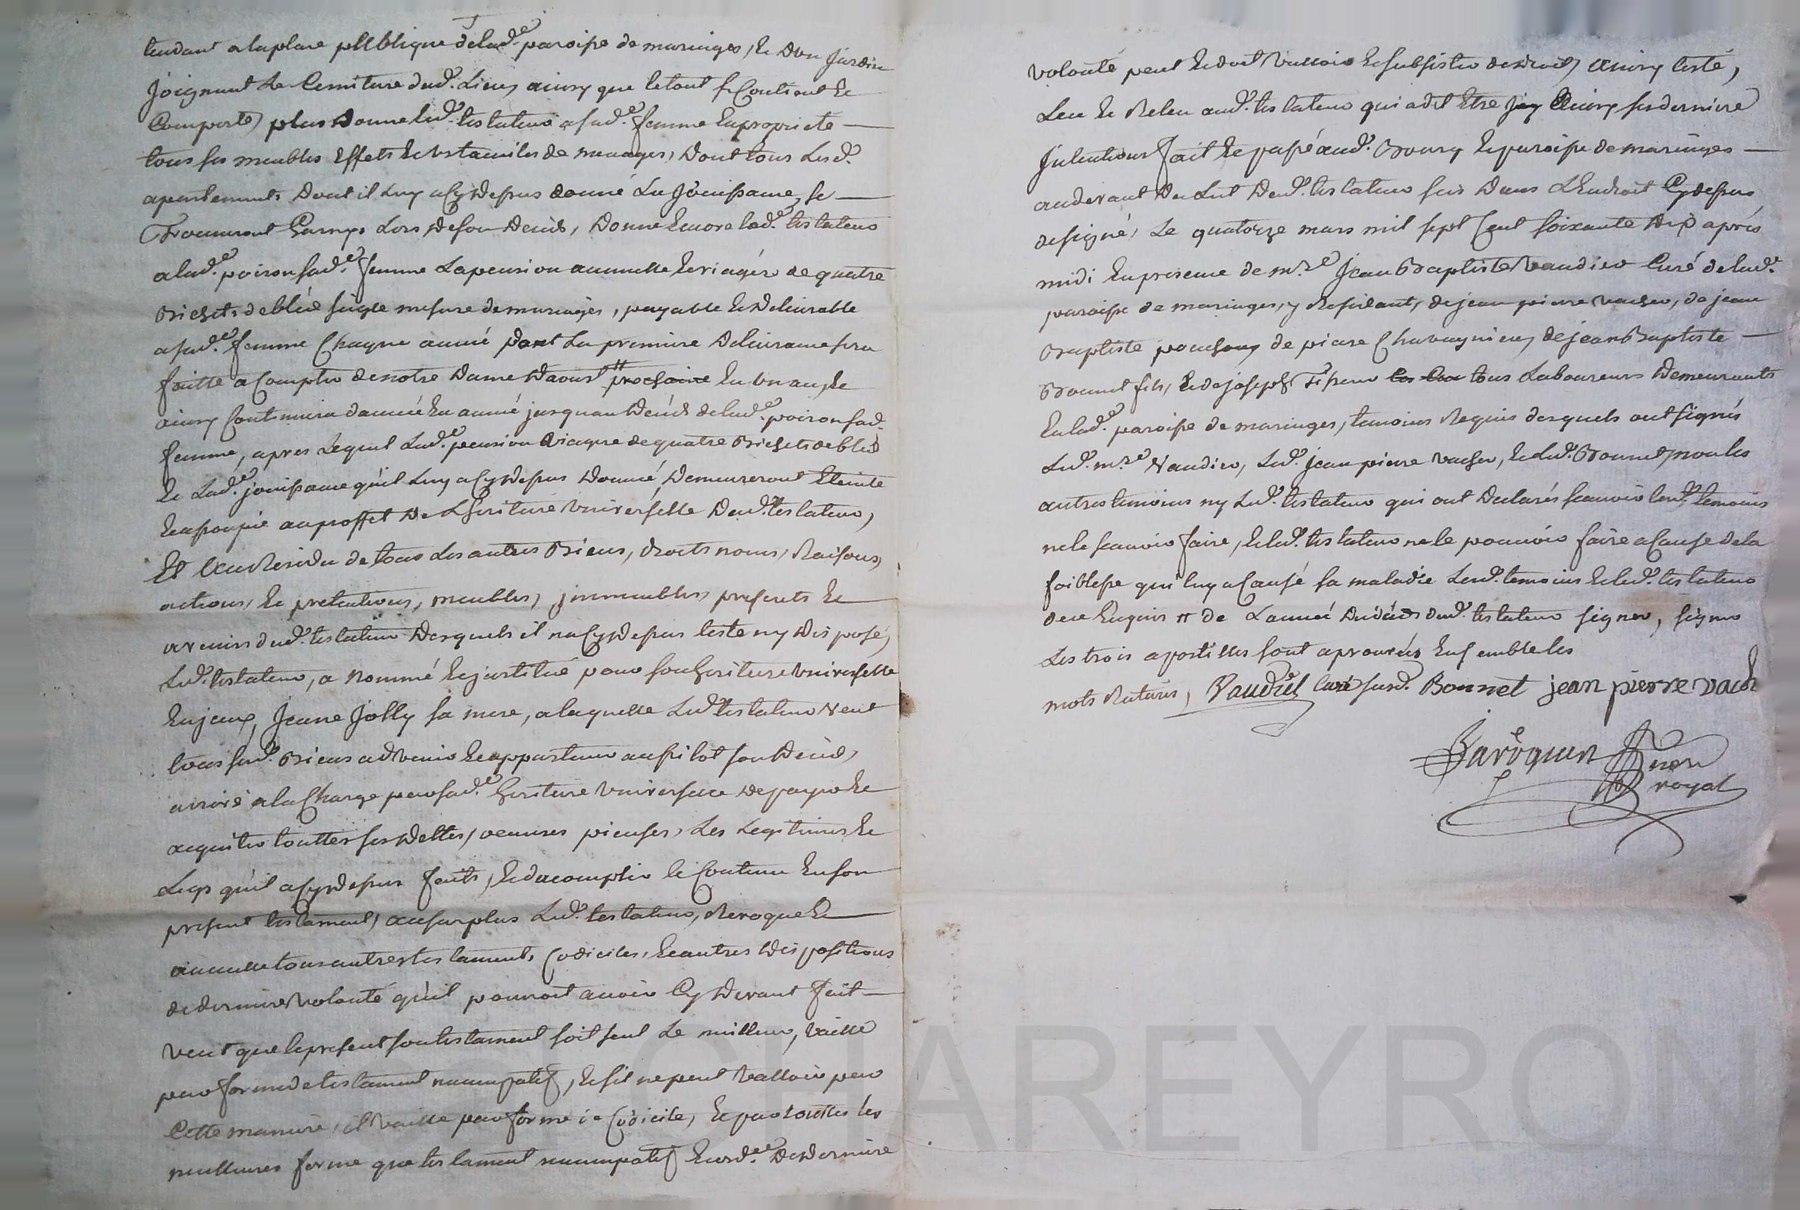 tendant a la place plublique de lad.e paroisse de maringes, & d'un Jardin
Joignant Le Cemitiere dud. Lieu, ainsy que le tout se Contient &
Comporte, plus donne led. testateur a sad.e femme la propriete
tous ses meubles Effets & Ustanciles de menages, dont tous Lesd.
apartements dont il luy a Cy depus donné La Jouissance, se
Trouveront Garnys Lors de son deceds, donne Encore led. testateur
a lad.e poiron sad.e femme La pension annuelle & viagere de quatre
bichets de bled seigle mesure de maringes, payable & delivrable
a sad.e femme Chaque année dont La premiere delivrance sera
faitte a Compter de notre dame daoust prochaine En un an, &
ainsy Continuera d'année En année jusquau deceds de lad.e poiron sad.
femme, apres Lequel Lad.e pension viagere de quatre bichets de bled
& Lad.e jouissance qu'il Luy a Cy depus donné, demeureront Eteinte
& assoupie au proffet de Lheritiere universelle dud. testateur,
Et Au Residu de tous Les autres biens, droits noms, Raisons,
actions, & pretentions, meubles, jmmeubles presents &
avenirs dud. testateur desquels il n'a Cy depus testé ny disposé,
Led. testateur, a nommé & jnstitué pour son heritiere universelle
Jeane Jolly sa mere, a laquelle Led. testateur Veut
tous sesd. biens advenir & appartenir aussitot son deceds,
arrivé a la Charge pour sad.e heritiere universelle de payer &
acquiter touttes ses dettes, oeuvres pieuses, Les Legitimes &
Legs qu'il a Cy depus faits, & d'acomplir le Contenu En son
present testament, au surplus Led. testateur, Revoque &
annulle tous autres testaments, Codiciles, & autres dispositions
de derniere volonté qu'il pourroit avoir Cy devant fait
Veut que le present son testament soit seul Le meilleur, vaille
pour forme de testament nuncupatif, & s'il ne peut valloir pour
Cette maniere, il vaille pour forme de Codicile, & par touttes les
meilleures forme que testament nuncupatif de derniere
volonté peut & doit valloir & subsister de droit, Ainsy testé,
Leu & Releu aud. testateur qui a dit Etre Ainsy ses derniere
Jntentions fait & passé aud. Bourg & paroisse de maringes
au devant du Lit dud. testateur sis dans L'Endroit Cy depus
designé, Le quatorze mars mil sept Cent soixante dix après
midi En presence de m.re Jean Baptiste Vaudier Curé de lad.
paroisse de maringes, y Residant, de jean pierre vacher, de jean
Baptiste ponchon, de piere Chavagnieu, de jean Baptiste
Bonnet fils, & de joseph tous Laboureurs demeurants
En lad. paroisse de maringes, temoins Requis desquels ont signés
Led. m.re Vaudier, Led. jean pierre vacher, & Led. Bonnet, non les
autres temoins ny Led. testateur qui ont declarés scavoir lesd. temoins
ne le scavoir faire, & led. testateur ne le pouvoir faire a Cause de la
foiblesse qui luy a Causé sa maladie Lesd. temoins & led. testateur
de ce Enquis # de L'année du déceds dud. testateur signer, signes
Les trois apostilles sont aprouvées Ensemble les
mots Raturés, Vaudier Curé susd. Bonnet jean pierre vach
Baroquin
no.re
royal
CHAREYRON